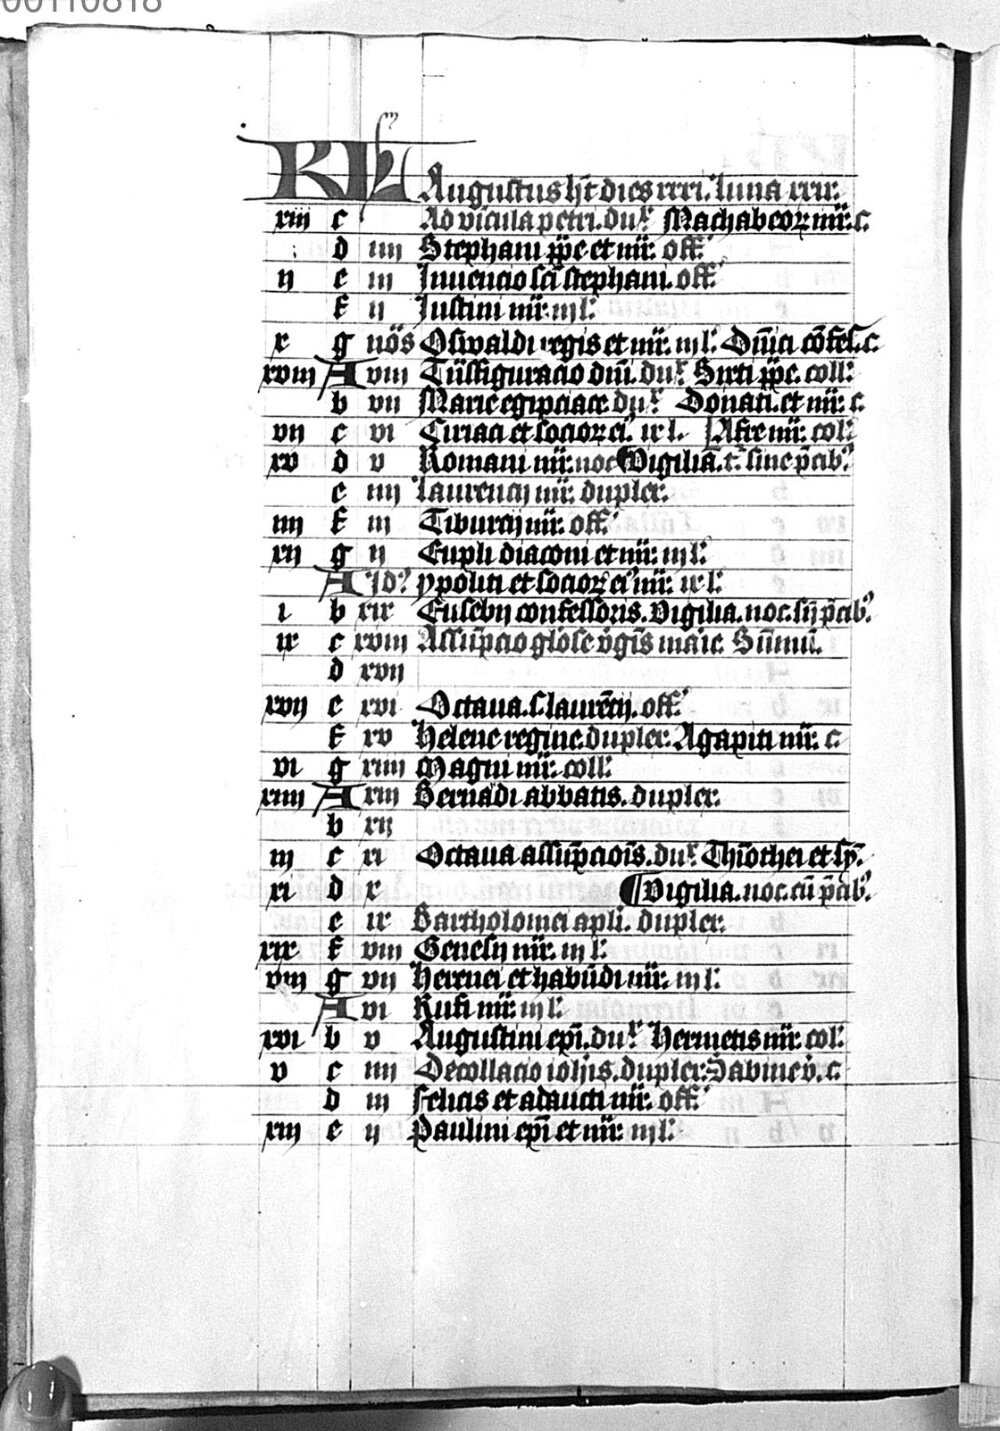 00110818
KL Augustus ht dies xxxi. luna xxix.
xiii c Ad vicula petri. dux. Machabeoꝝ mr̄. c.
d iiii Stephani pp̄e et mr̄. off.
ii e iii Inuencio sc̄i stephani. off.
f ii Iustini mr̄. iii l.
x g nōs Oswaldi regis et mr̄. iii l. Dn̄ici cōfess. c.
xviii A viii Trāsfiguracio dn̄i. dux. Sixti pp̄e. coll.
b vii Marie egipciace dux. Donati. et mr̄. c.
vii c vi Ciriaci et socioꝝ ei. ix l. Afre mr̄. col.
xv d v Romani mr̄. noc Vigilia. t. sine p̄cib.
e iiii laurencij mr̄. dupler.
iiii f iii Tiburcij mr̄. off.
xii g ii Eupli diaconi et mr̄. iii l.
A Id. ypoliti et socioꝝ ei mr̄. ix l.
i b xix Eusebij confessoris. Vigilia. noc. sn̄ p̄cib.
ix c xviii Assūpcio gl̄ose v̄gīs marie. Sūmū.
d xvii
xvii e xvi Octaua. S laurēcij. off.
f xv Helene regine. dupler. Agapiti mr̄. c
vi g xiiii Magni mr̄. coll.
xiiii A xiii Bernādi abbatis. dupler.
b xii
iii c xi Octaua assūpciois. dux. Thīothei et sy.
xi d x Vigilia. noc. cū p̄cib.
e ix Bartholomei apli. dupler.
xix f viii Genesij mr̄. iii l.
viii g vii Herenei et habūdi mr̄. iii l.
A vi Rufi mr̄. iii l.
xvi b v Augustini ep̄i. dux. Hermetis mr̄. col.
v c iiii Decollacio ioh̄is. dupler. Sabine v. c.
d iii felicis et adaucti mr̄. off.
xiii e ii Paulini ep̄i et mr̄. iii l.